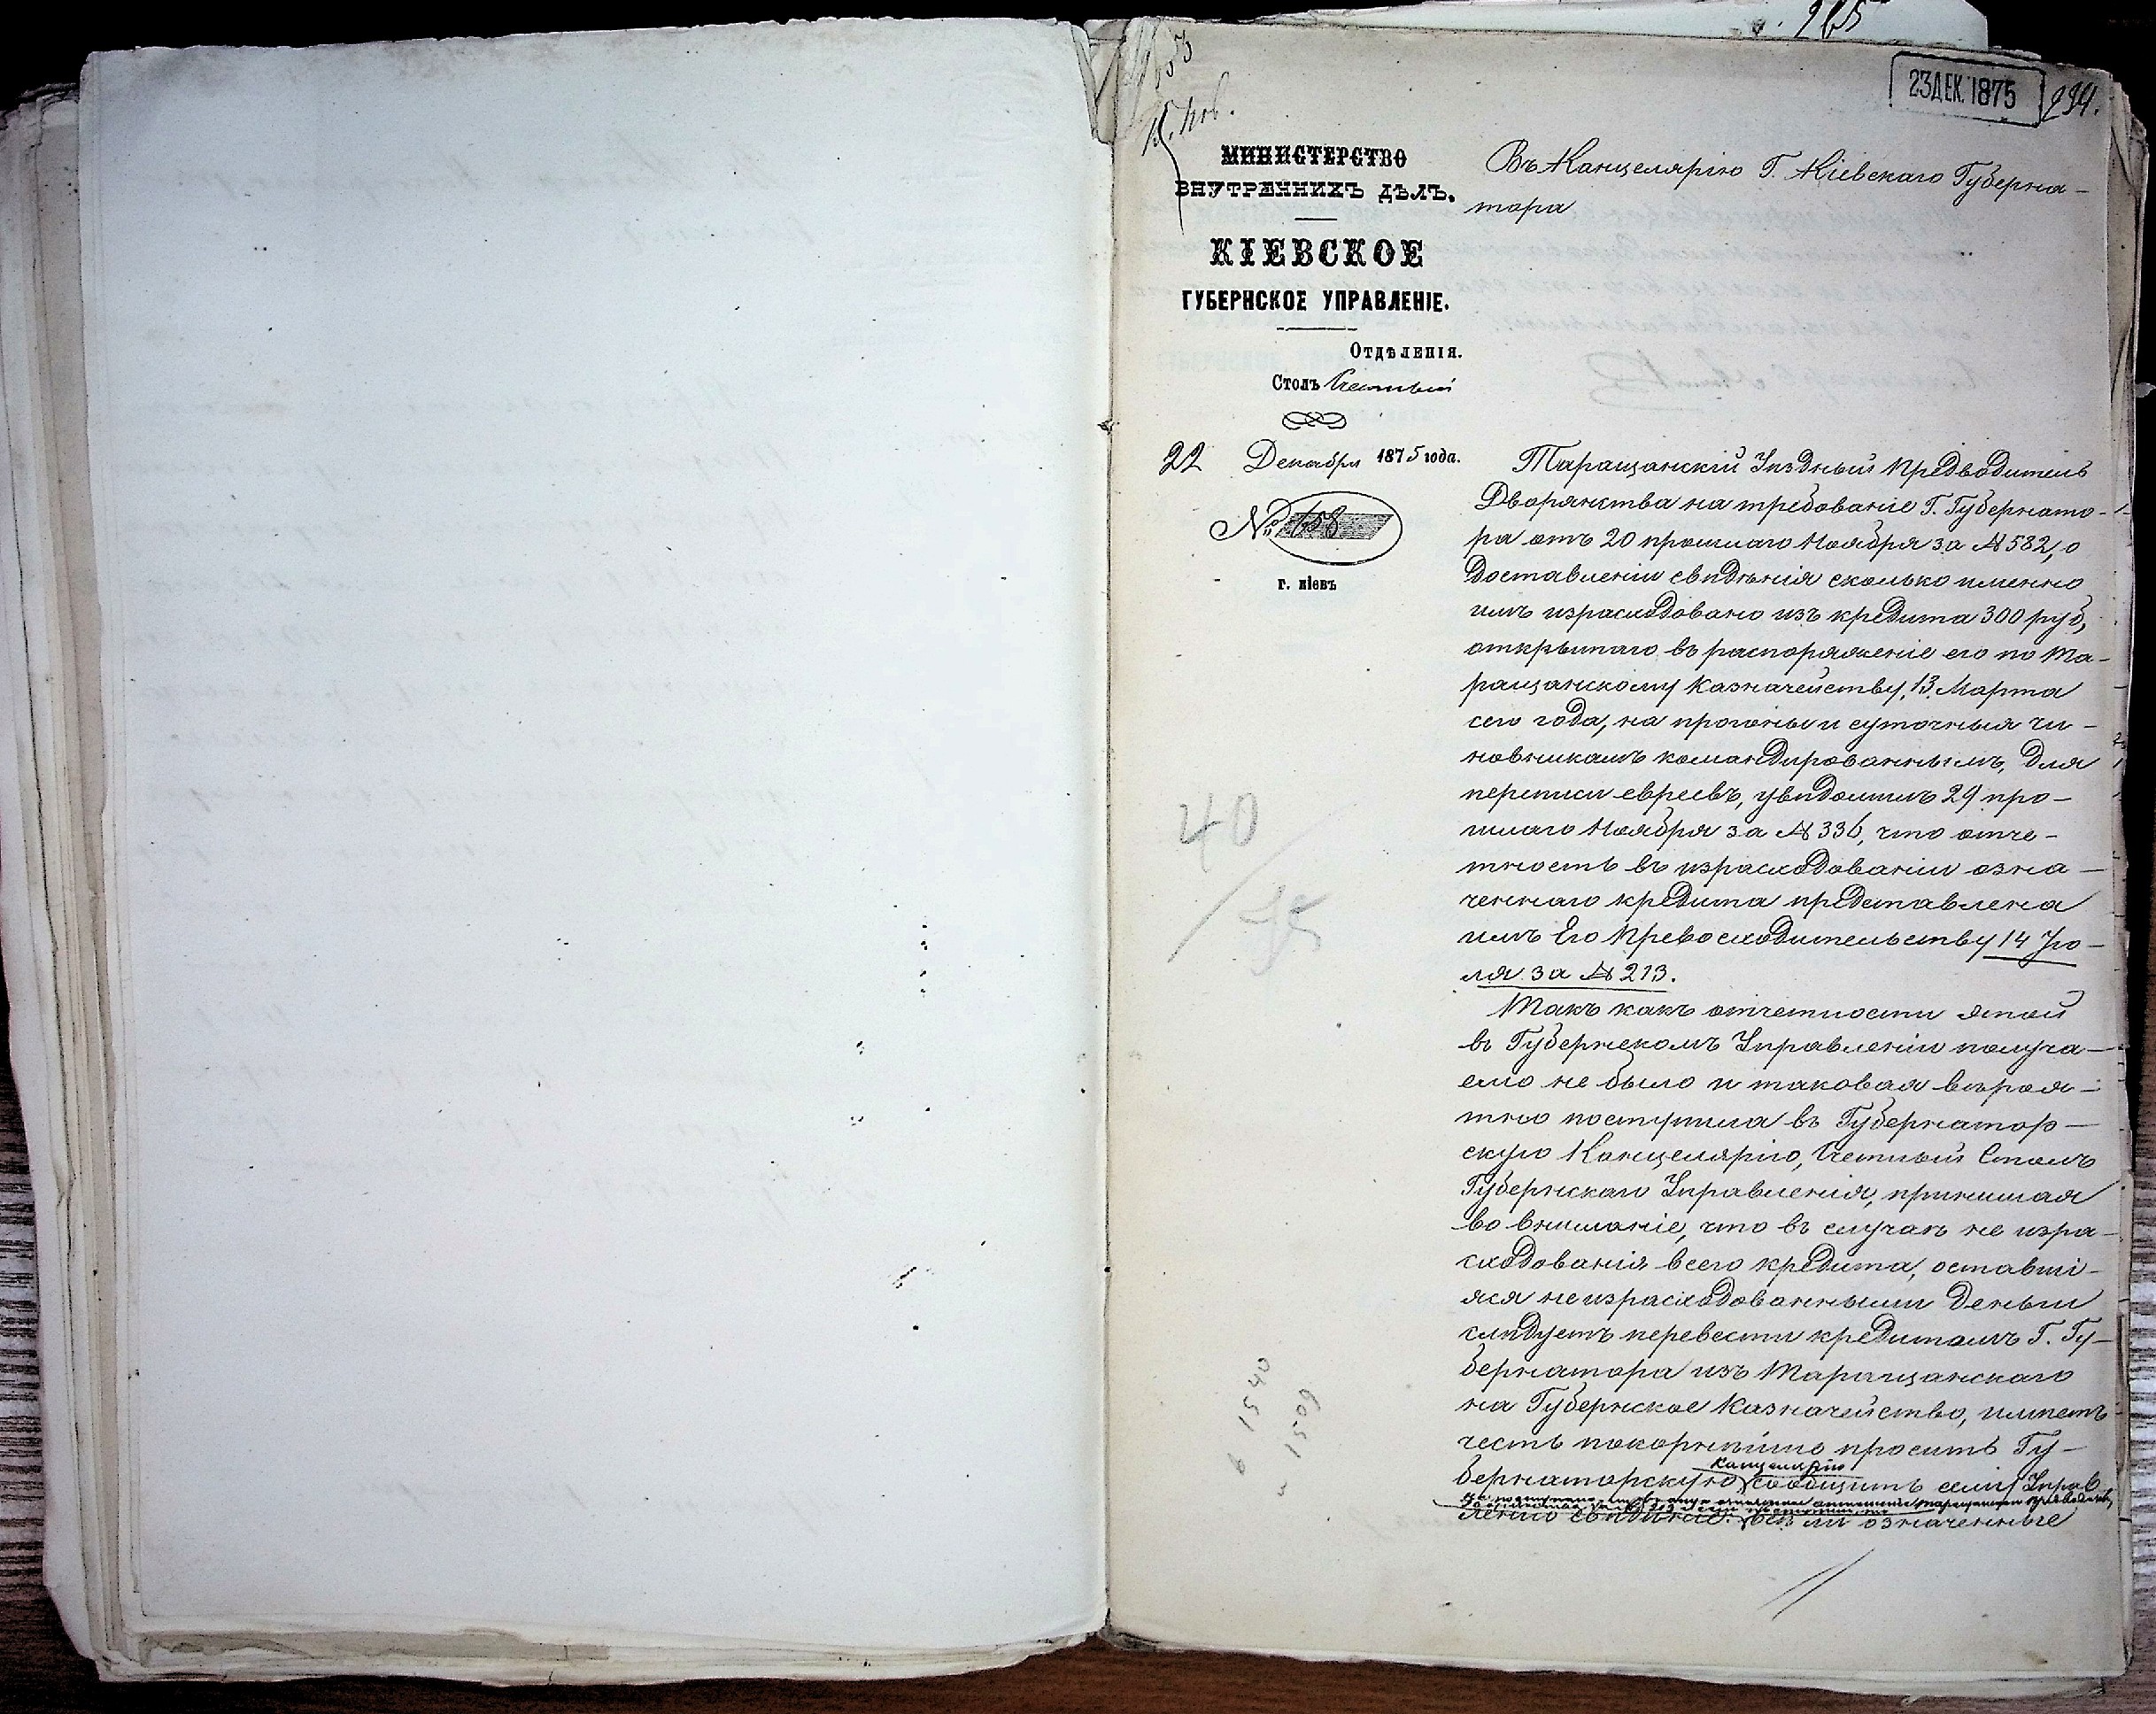 265
23 ДЕК. 1875
294.
МИНИСТЕРСТВО
ВНУТРЕННИХЪ ДѢЛЪ.
КІЕВСКОЕ
ГУБЕРНСКОЕ УПРАВЛЕНІЕ.
Отдѣленія.
Столъ Счетный
22 Декабря 1875 года.
№ 158
г. Кіевъ
40
75
1540
1509
Въ Канцелярію Г. Кіевскаго Губерна-
тора
Таращанскій Уѣздный Предводитель
Дворянства на требованіе Г. Губернато-
ра отъ 20 прошлаго Ноября за № 582, о
доставленіи свѣдѣнія сколько именно
имъ израсходовано изъ кредита 300 руб,
открытаго въ распоряженіе его по Та-
ращанскому Казначейству, 13 Марта
сего года, на прогоны и суточныя чи-
новникамъ командированнымъ, для
переписи евреевъ, увѣдомилъ 29 про-
шлаго Ноября за № 336, что отче-
тность въ израсходованіи озна-
ченнаго кредита представлена
имъ Его Превосходительству 14 Iю-
ля за № 213.
Такъ какъ отчетности этой
въ Губернскомъ Управленіи получа-
емо не было и таковая вѣроя-
тно поступила въ Губернатор-
скую Канцелярію, Счетный Столъ
Губернскаго Управленія, принимая
во вниманіе, что въ случаѣ не изра-
сходованія всего кредита, оставші-
яся неизрасходованными деньги
слѣдуетъ перевести кредитомъ Г. Гу-
бернатора изъ Таращанскаго
на Губернское Казначейство, имѣетъ
честь покорнѣйше просить Гу-
канцелярію
бернаторскую сообщить сему Управ
леню свѣдѣніе: всѣ ли означенные